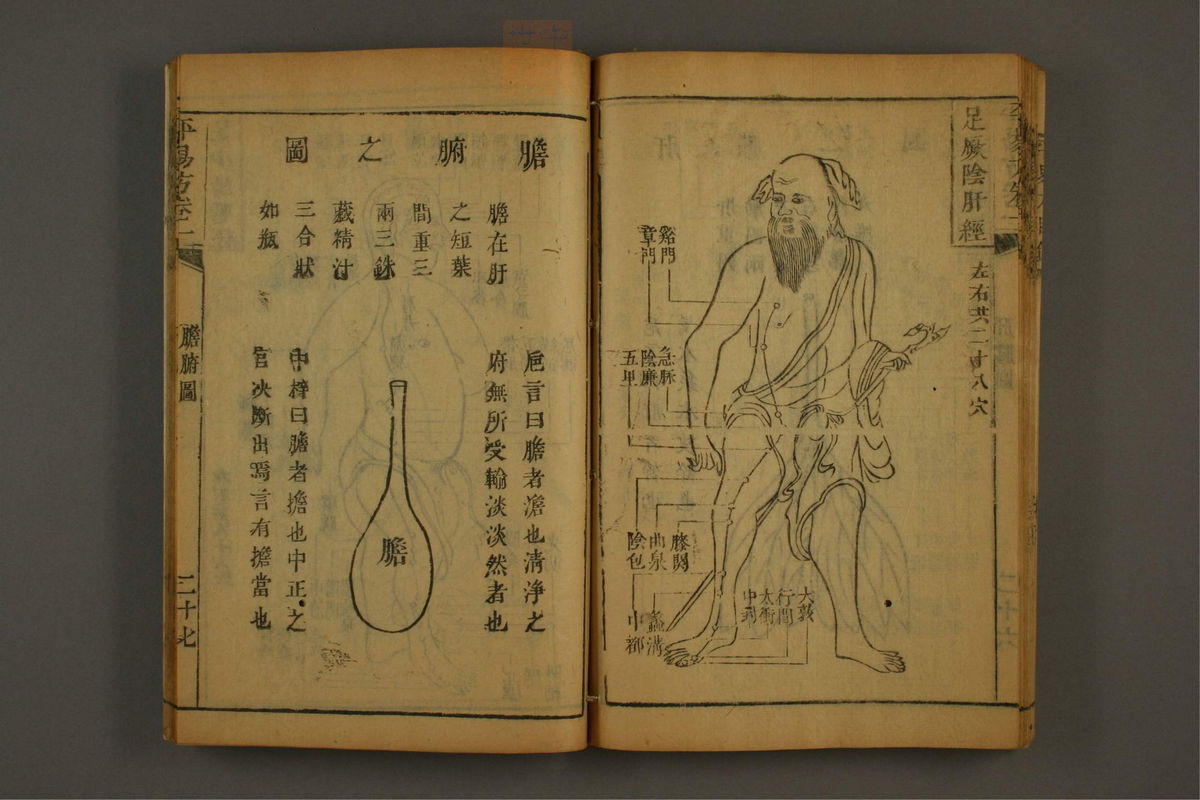 足厥陰肝經
左右共二十八穴
谿門
章門
急脈
陰廉
五里
膝關
曲泉
陰包
大敦
行間
太衝
中封
蠡溝
中都
膽腑之圖
膽在肝
之短葉
間重三
兩三銖
藏精汁
三合狀
如瓶
卮言曰膽者澹也清淨之
府無所受輸淡淡然者也
膽
中梓曰膽者擔也中正之
官决斷出焉言有擔當也
平易方卷二
膽腑圖
二十七